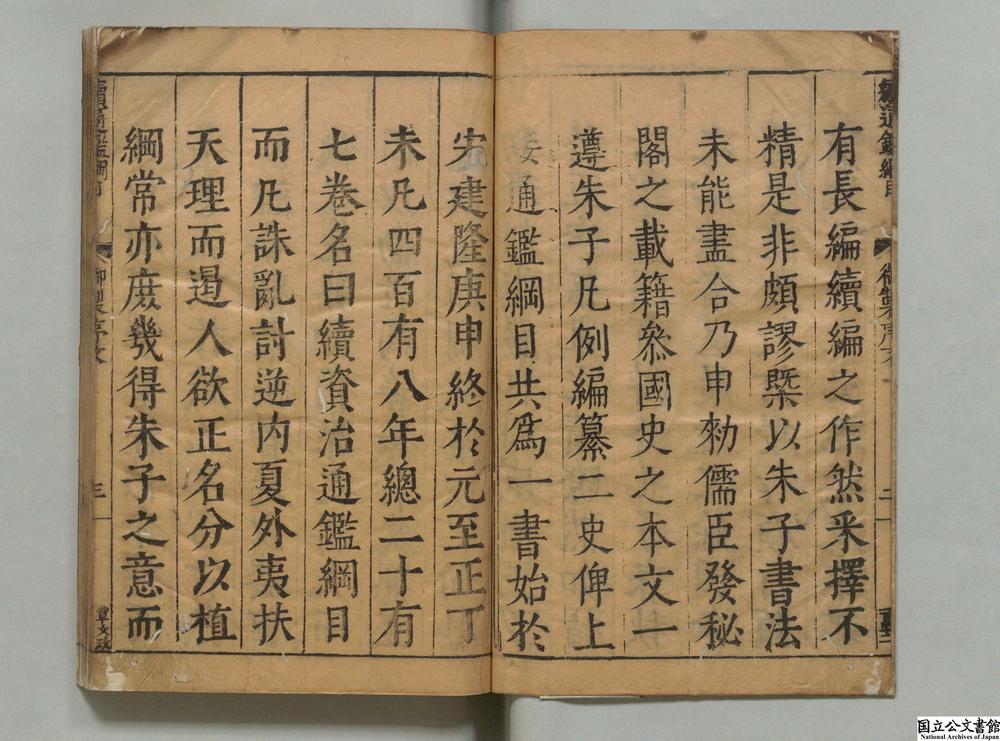 有長編續編之作然采擇不
精是非頗謬槩以朱子書法
未能盡合乃申勑儒臣發秘
閣之載籍叅國史之本文一
遵朱子凡例編纂二史俾上
接通鑑綱目共爲一書始於
宋建隆庚申終於元至正丁
未凡四百有八年總二十有
七卷名曰續資治通鑑綱目
而凡誅亂討逆内夏外夷扶
天理而遏人欲正名分以植
綱常亦庶幾得朱子之意而
續通鑑綱目
御製序文
三
国立公文書館
National Archives of Japan